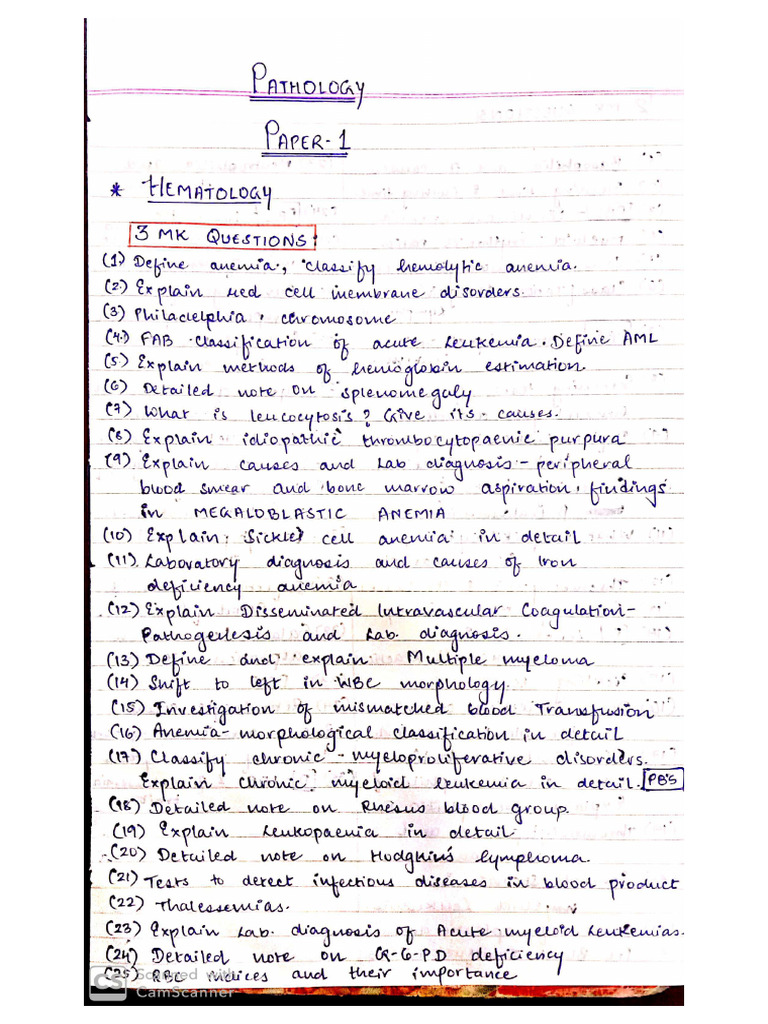 PATHOLOGY
PAPER-1
* HEMATOLOGY
3 MK QUESTIONS:
(1) Define anemia, classify hemolytic anemia.
(2) Explain red cell membrane disorders.
(3) Philadelphia chromosome
(4) FAB classification of acute leukemia. Define AML
(5) Explain methods of hemoglobin estimation
(6) Detailed note on splenomegaly
(7) What is leucocytosis? Give its causes.
(8) Explain idiopathic thrombocytopaenic purpura
(9) Explain causes and lab diagnosis - peripheral
blood smear and bone marrow aspiration, findings
in MEGALOBLASTIC ANEMIA
(10) Explain Sickle cell anemia in detail
(11) Laboratory diagnosis and causes of Iron
deficiency anemia
(12) Explain Disseminated Intravascular Coagulation-
Pathogenesis and Lab. diagnosis.
(13) Define and explain Multiple myeloma
(14) Shift to left in WBC morphology.
(15) Investigation of mismatched blood Transfusion
(16) Anemia - morphological classification in detail
(17) Classify chronic - myeloproliferative disorders.
Explain chronic myeloid leukemia in detail. PBS
(18) Detailed note on Rhesus blood group.
(19) Explain Leukopaenia in detail
(20) Detailed note on Hodgkin's lymphoma.
(21) Tests to detect infectious diseases in blood product
(22) Thalassemias.
(23) Explain Lab. diagnosis of Acute myeloid Leukemias.
(24) Detailed note on G-6-P-D deficiency
(25) RBC indices and their importance
CS Scanned with
CamScanner